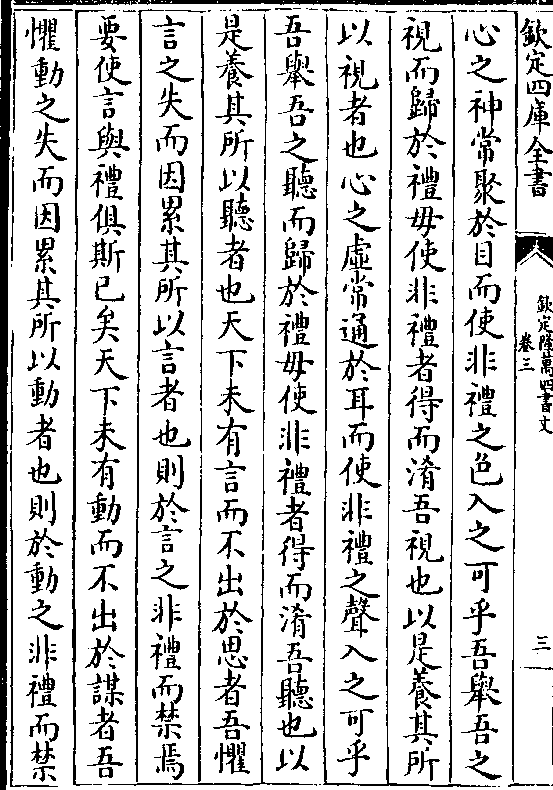 欽定四庫全書
欽定隆萬四書文
卷三
三
心之神常聚於目而使非禮之色入之可乎吾舉吾之
視而歸於禮毋使非禮者得而淆吾視也以是養其所
以視者也心之虛常通於耳而使非禮之聲入之可乎
吾舉吾之聽而歸於禮毋使非禮者得而淆吾聽也以
是養其所以聽者也天下未有言而不出於思者吾懼
言之失而因累其所以言者也則於言之非禮而禁焉
要使言與禮俱斯已矣天下未有動而不出於謀者吾
懼動之失而因累其所以動者也則於動之非禮而禁